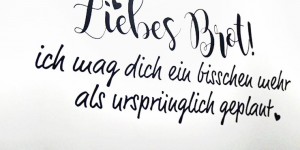 Liebes Brot!
ich mag dich ein bisschen mehr
als ursprünglich geplant.